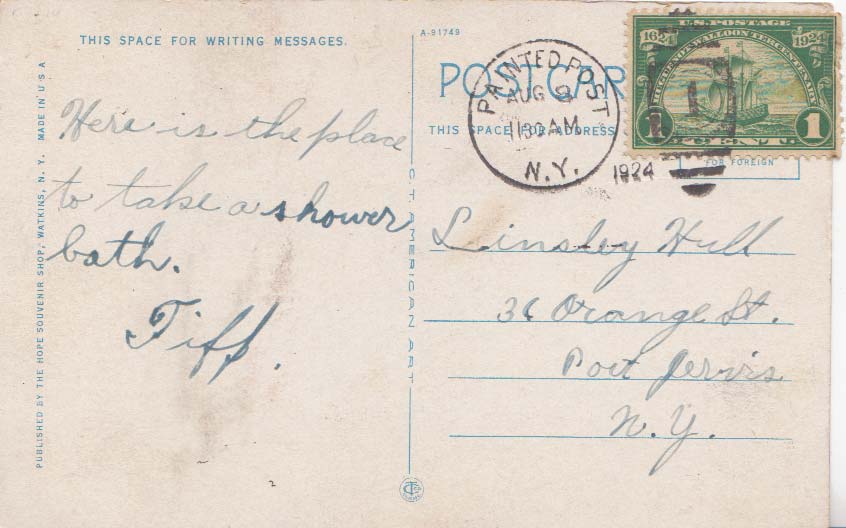 THIS SPACE FOR WRITING MESSAGES.
Here is the place
to take a shower
bath.
Tiff.
PUBLISHED BY THE HOPE SOUVENIR SHOP, WATKINS, N. Y. MADE IN U S A
C.T. AMERICAN ART
A-91749
POSTCAR
THIS SPACE FOR ADDRESS
PAINTED POST
AUG 9
1130 AM
N.Y.
1924
U.S. POSTAGE
1624 1924
HUGUENOT-WALLOON TERCENTENARY
1 CENT 1
FOR FOREIGN
Linsley Hill
36 Orange St.
Port Jervis
N.Y.